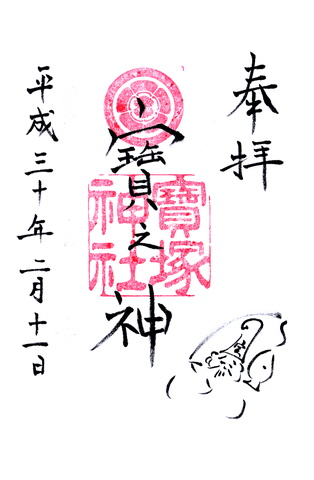 奉拝
寳之神
寳塚
神社
平成三十年二月十一日